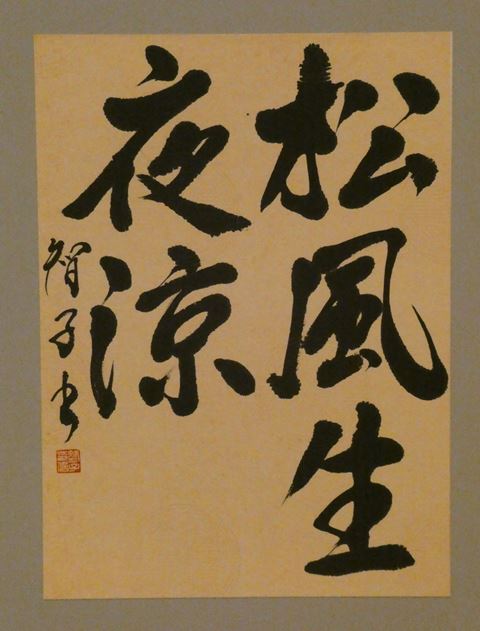 松風生
夜涼
智子书